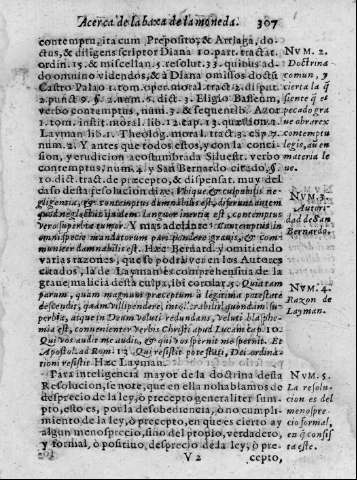 Acerca de la baxa de la moneda. 307
contemptu, ita cum Preposito, & Arriaga, do-
ctus, & diligens scriptor Diana 10. part. tractat.
ordin. 15. & miscellan. 5. resolut. 33. quibus ad-
do omnino videndos, & à Diana omissos docti
Castro Palao 1. tom. oper. moral. tract. 2. disput.
2. punct. 9. §. 2. num. 5. dict. 3. Eligio Basseum,
verbo contemptus, num. 3. & sequentib. Azor
1. tom. instit. moral. lib. 12. cap. 13. quæstion. 2.
Layman lib. 1. Theolog. moral. tract. 3. cap. 7.
num. 2. Y antes que todos estos, y con la conci-
sion, y erudicion acostumbrada Siluestr. verbo
contemptus, num. 2. y San Bernardo citado §.
10. dict. tract. de præcepto, & dispensat. muy del
caso desta resolucion dize: Vbique & culpabilis ne-
gligentia, & contemptus damnabilis est, differunt autem
quod neglectus quidem languor inertiæ est, contemptus
vero superbiæ tumor. Y mas adelante: Contemptus in
omni specie mandatorum pari pondere grauis, & com-
muniter damnabilis est. Hæc Bernard. y omitiendo
varias razones, que se podràn ver en los Autores
citados, la de Layman es comprehensiua de la
graue malicia desta culpa, ibi corolar. 5. Quia tam
parum, quàm magnum præceptum à legitima potestate
descendit, quàm vilipendere, intolerabilis quædam su-
perbia, atque in Deum veluti redundans, veluti blasphe-
mia est, convenienter verbis Christi apud Lucam cap. 10.
Qui vos audit me audit, & qui vos spernit me spernit. Et
Apostol. ad Rom. 13. Qui resistit potestati, Dei ordina-
tioni resistit. Hæc Layman.
Para inteligencia mayor de la doctrina desta
Resolucion, le note, que en ella no hablamos de
desprecio de la ley, ò precepto generaliter sum-
pto, esto es, por la desobediencia, ò no cumpli-
miento de la ley, ò precepto, en que es cierto ay
algun menosprecio, sino del propio, verdadero,
y formal, ò positiuo, desprecio de la ley, ò pre-
V 2 cepto,
NVM. 2.
Doctrina
comun, y
cierta la q̃
siente q̃ es
pecado gra-
ue obrer ex
contemptu
legis, aũ en
materia le
ue.
NVM. 3.
Autori-
dad de San
Bernardo.
NVM. 4.
Razon de
Layman.
NVM. 5.
La resolu-
cion es del
menospre-
cio formal,
en q̃ consis
ta este.